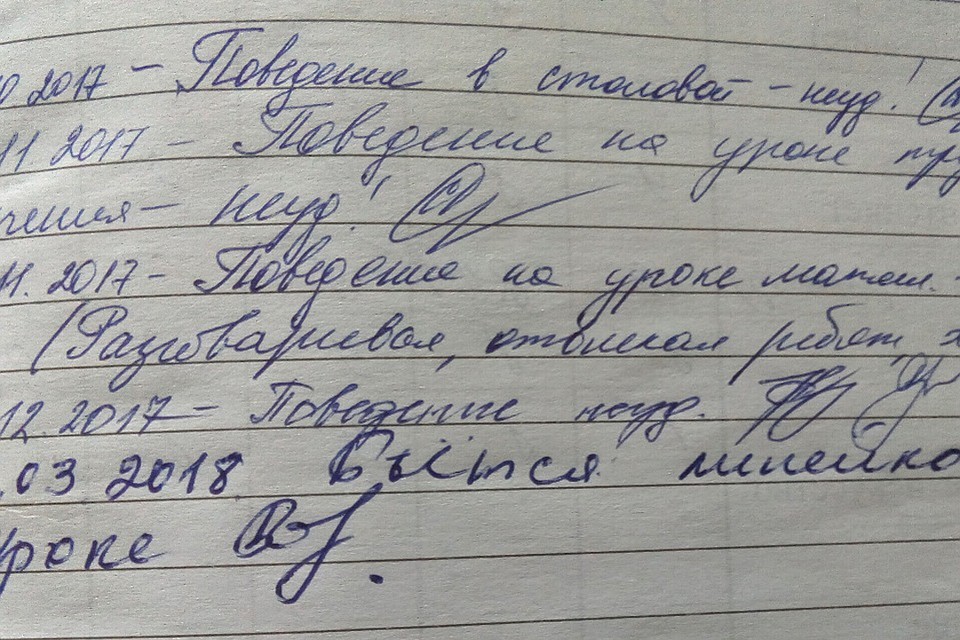 0 2017 – Поведение в столовой – неуд!
11 2017 – Поведение на уроке тру
чения – неуд!
11. 2017 – Поведение на уроке матем.-
(Разговаривал, отвлекал ребят, х
12. 2017 – Поведение неуд.
.03 2018 Бьётся линейко
уроке